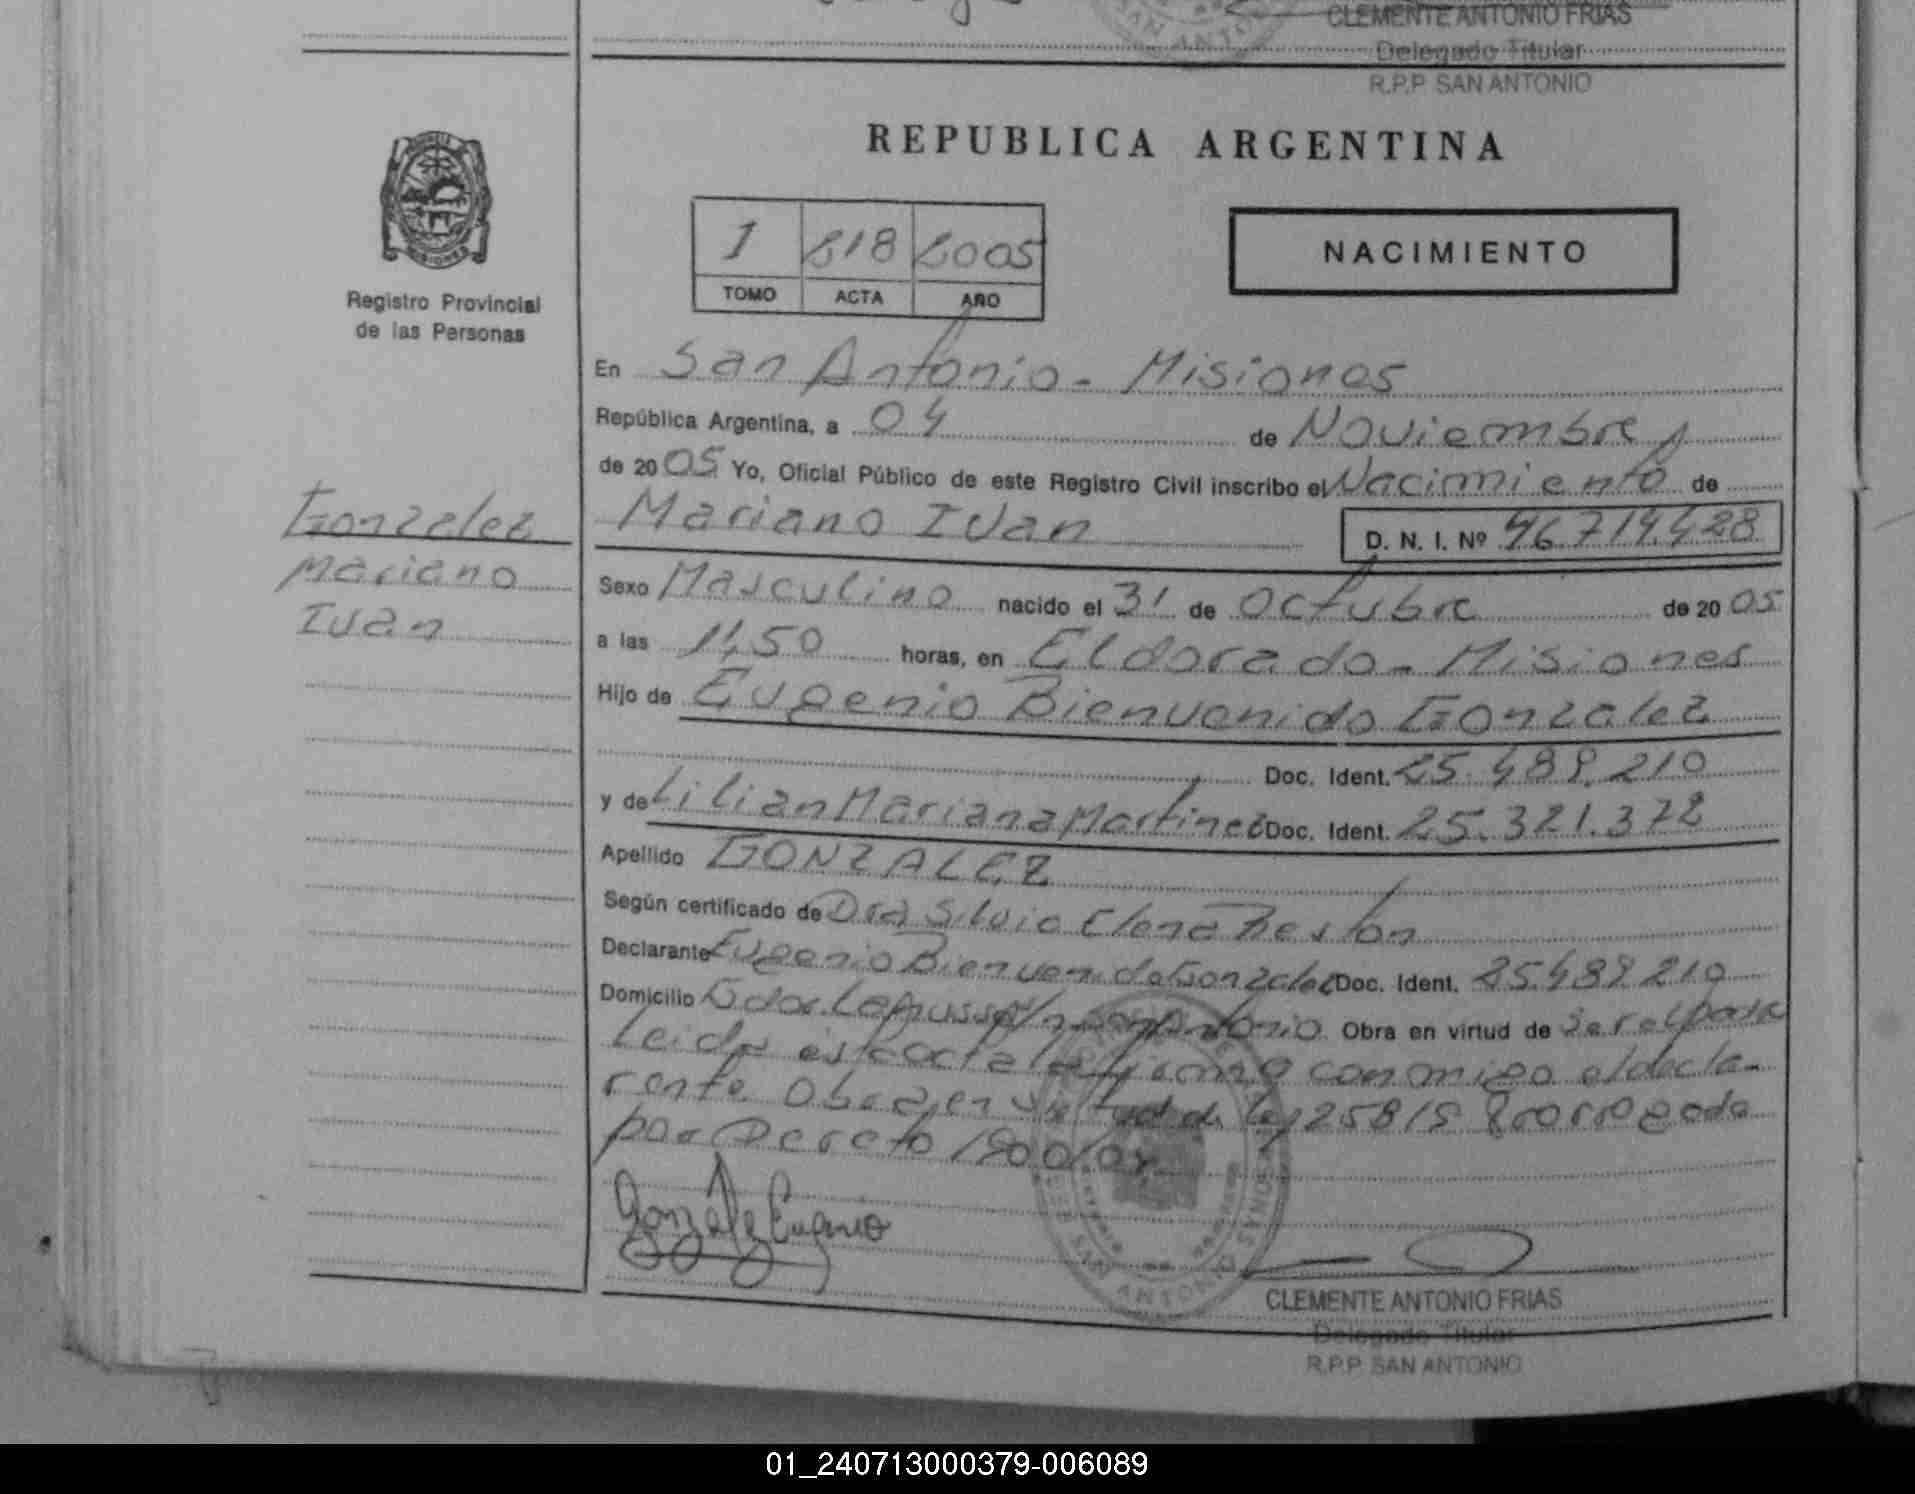 CLEMENTE ANTONIO FRIAS
Delegado Titular
R.P.P. SAN ANTONIO
REPUBLICA ARGENTINA
1 218 2005
TOMO ACTA AÑO
NACIMIENTO
Registro Provincial
de las Personas
En San Antonio - Misiones
República Argentina, a 04 de Noviembre
de 2005 Yo, Oficial Público de este Registro Civil inscribo el Nacimiento de
Mariano Ivan D. N. I. Nº 46.714.428
Gonzalez
Mariano
Ivan
Sexo Masculino nacido el 31 de Octubre de 2005
a las 11,50 horas, en Eldorado - Misiones
Hijo de Eugenio Bienvenido Gonzalez
Doc. Ident. 25.489.210
y de Lilian Mariana Martinez Doc. Ident. 25.321.372
Apellido GONZALEZ
Según certificado de Dra Silvia Elena Reston
Declarante Eugenio Bienvenido Gonzalez Doc. Ident. 25.489.210
Domicilio San Antonio Obra en virtud de ser el padre
Leida esta acta la firma conmigo el decla-
rante. Obra en virtud de ley 25819 Prorrogada
por Decreto 1800/04
Gonzalez Eugenio
SAN ANTONIO
CLEMENTE ANTONIO FRIAS
Delegado Titular
R.P.P. SAN ANTONIO
01_240713000379-006089